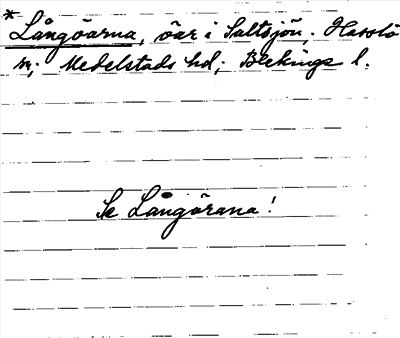 * Långöarna, öar i Saltsjön; Hasslö
sn; Medelstads hd; Blekinge l.
Se Långörana!